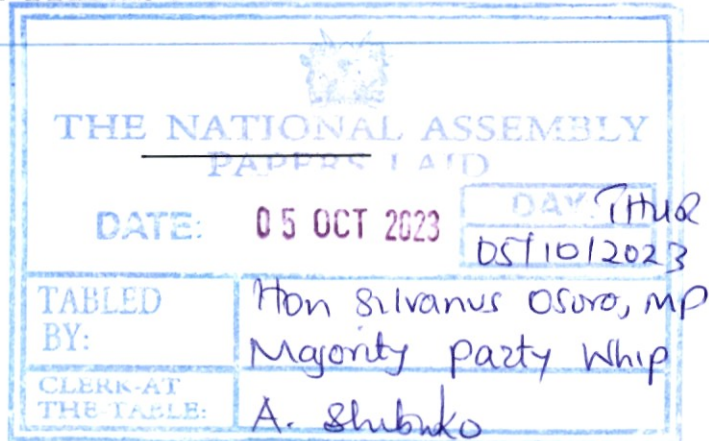 THE NATIONAL ASSEMBLY
PAPERS LAID
DATE: 05 OCT 2023 DAY: THUR
05/10/2023
TABLED BY: Hon Silvanus Osoro, MP
Majority Party Whip
CLERK-AT THE-TABLE: A. Shibuko